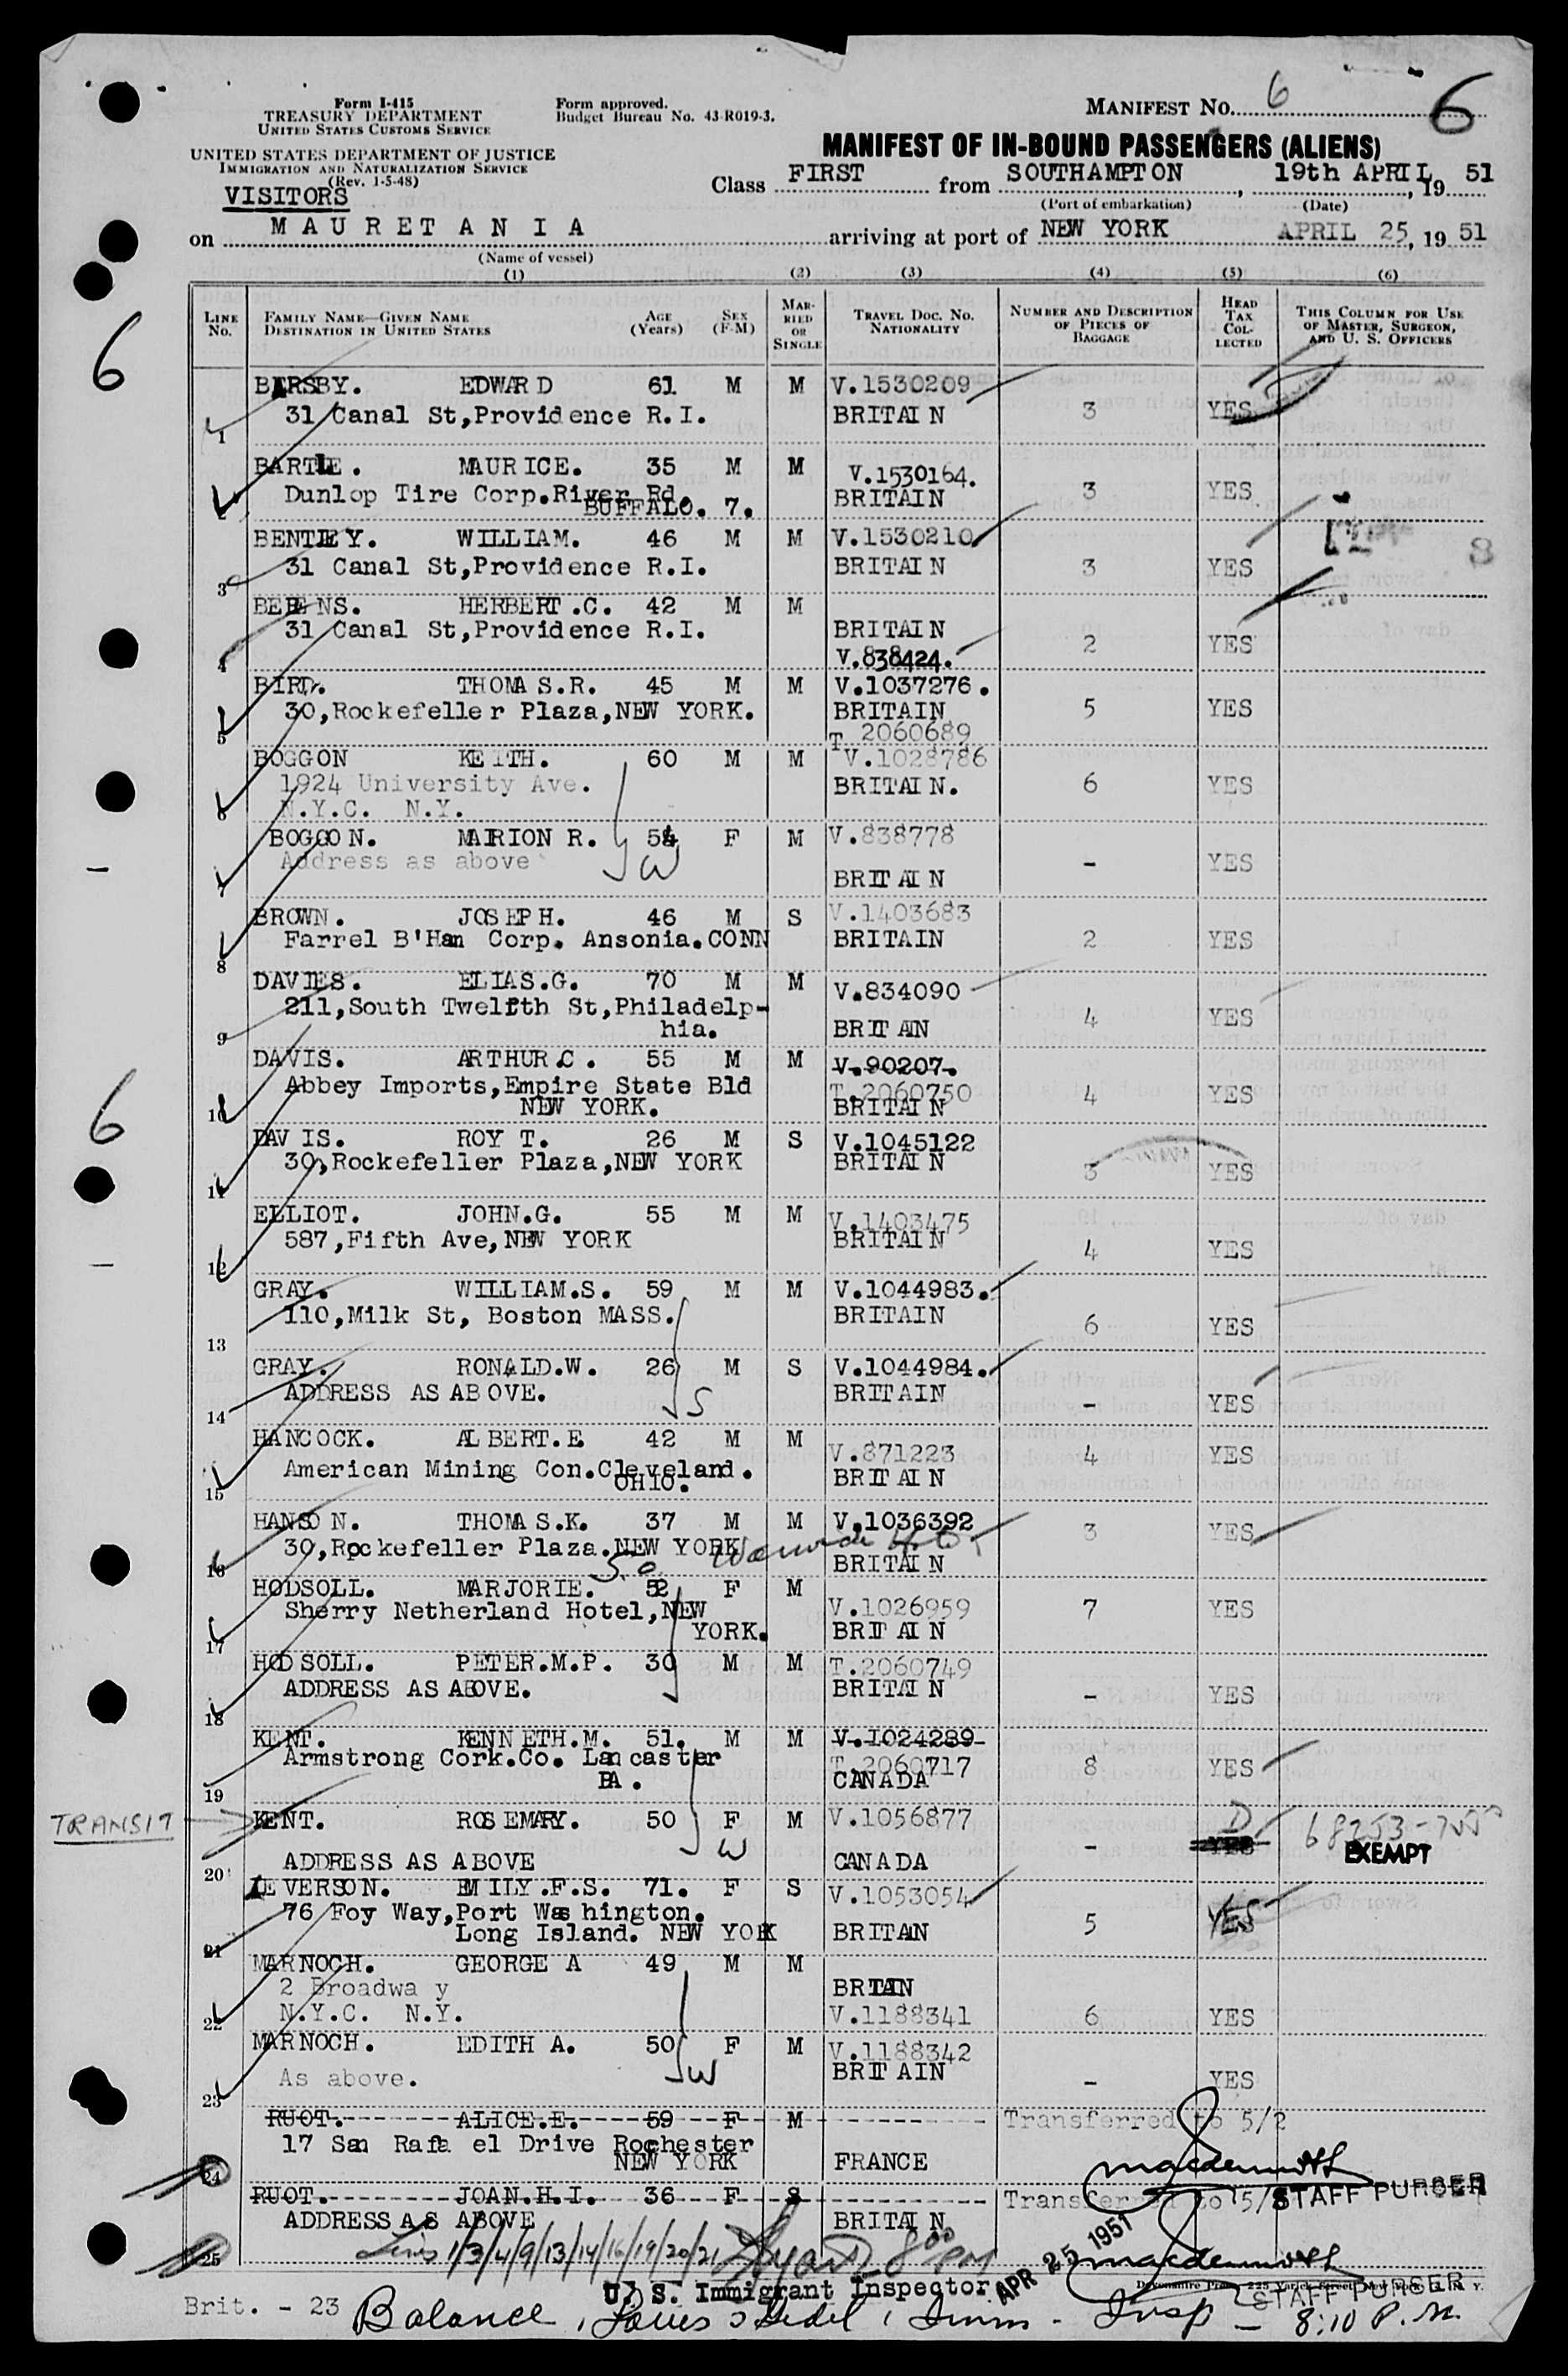 Form I-415
TREASURY DEPARTMENT
UNITED STATES CUSTOMS SERVICE
UNITED STATES DEPARTMENT OF JUSTICE
IMMIGRATION AND NATURALIZATION SERVICE
(Rev. 1-5-48)
VISITORS
Form approved.
Budget Bureau No. 43-R019-3.
MANIFEST NO. 6
6
MANIFEST OF IN-BOUND PASSENGERS (ALIENS)
Class FIRST from SOUTHAMPTON, 19th APRIL, 19 51
(Port of embarkation) (Date)
on MAURETANIA arriving at port of NEW YORK APRIL 25, 19 51
(Name of vessel)
(1) (2) (3) (4) (5) (6)
LINE No. FAMILY NAME—GIVEN NAME DESTINATION IN UNITED STATES AGE (Years) SEX (F-M) MARRIED OR SINGLE TRAVEL DOC. NO. NATIONALITY NUMBER AND DESCRIPTION OF PIECES OF BAGGAGE HEAD TAX COLLECTED THIS COLUMN FOR USE OF MASTER, SURGEON, AND U. S. OFFICERS
6
BARSBY. EDWARD 61 M M V.1530209
1 31 Canal St,Providence R.I. BRITAIN 3 YES
BARTLE. MAURICE. 35 M M V.1530164.
2 Dunlop Tire Corp.River Rd. BRITAIN 3 YES
BUFFALO. 7.
BENTLEY. WILLIAM. 46 M M V.1530210
3 31 Canal St,Providence R.I. BRITAIN 3 YES
8
BEHRENS. HERBERT.C. 42 M M
4 31 Canal St,Providence R.I. BRITAIN 2 YES
V.838424.
BIRD. THOMAS.R. 45 M M V.1037276.
5 30,Rockefeller Plaza,NEW YORK. BRITAIN 5 YES
T 2060689
BOGGON KEITH. 60 M M V.1028786
6 1924 University Ave. BRITAIN. 6 YES
N.Y.C. N.Y.
BOGGON. MARION R. 54 F M V.838778
7 Address as above W BRITAIN - YES
BROWN. JOSEPH. 46 M S V.1403683
8 Farrel B'Ham Corp. Ansonia.CONN BRITAIN 2 YES
DAVIES. ELIAS.G. 70 M M V.834090
9 211,South Twelfth St,Philadelp-
hia. BRITAIN 4 YES
DAVIS. ARTHUR.C. 55 M M V.90207.
10 Abbey Imports,Empire State Bld T.2060750 4 YES
NEW YORK. BRITAIN
6
DAVIS. ROY T. 26 M S V.1045122
11 30,Rockefeller Plaza,NEW YORK BRITAIN 3 YES
ELLIOT. JOHN.G. 55 M M V.1403475
12 587,Fifth Ave,NEW YORK BRITAIN 4 YES
GRAY. WILLIAM.S. 59 M M V.1044983.
13 110,Milk St, Boston MASS. BRITAIN 6 YES
GRAY. RONALD.W. 26 M S V.1044984.
14 ADDRESS AS ABOVE. S BRITAIN - YES
HANCOCK. ALBERT.E 42 M M V.871223 4 YES
15 American Mining Con.Cleveland. BRITAIN
OHIO.
HANSON. THOMAS.K. 37 M M V.1036392 3 YES
16 30,Rockefeller Plaza.NEW YORK BRITAIN
50
HODSOLL. MARJORIE. 52 F M
17 Sherry Netherland Hotel,NEW V.1026959 7 YES
YORK. BRITAIN
HODSOLL. PETER.M.P. 30 M M T.2060749
18 ADDRESS AS ABOVE. BRITAIN - YES
KENT. KENNETH.M. 51. M M V.1024289
19 Armstrong Cork.Co. Lancaster T.2060717 8 YES
PA. CANADA
TRANSIT KENT. ROSEMARY. 50 F M V.1056877 D
W - YES EXEMPT
20 ADDRESS AS ABOVE CANADA
LEVERSON. EMILY.F.S. 71. F S V.1053054
21 76 Foy Way,Port Washington. 5 YES
Long Island. NEW YORK BRITAIN
MARNOCH. GEORGE A 49 M M
22 2 Broadway BRITAIN
N.Y.C. N.Y. V.1188341 6 YES
MARNOCH. EDITH A. 50 F M V.1188342
23 As above. W BRITAIN - YES
RUOT. ALICE.E. 59 F M Transferred to 5/2
24 17 San Rafael Drive Rochester
NEW YORK FRANCE
STAFF PURSER
RUOT. JOAN.H.I. 36 F S Transferred to 5/
25 ADDRESS AS ABOVE BRITAIN
Lines 1/3/4/9/13/14/16/19/20/21 8 00 PM
APR 25 1951
U. S. Immigrant Inspector
STAFF PURSER
Brit. - 23
Balance, Insp - 8:10 P.M.